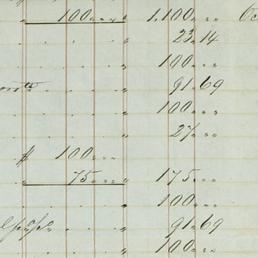 100 " " " 1,100 " "
" 23 14
" 100 " "
" 91 69
" 100 " "
" 27 " "
$ 100 " "
" 75 " " " 175 " "
" 100 " "
" 91 69
" 100 " "